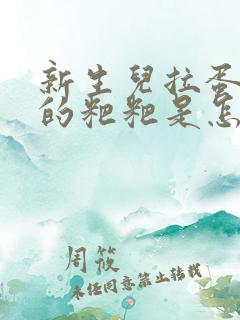 新生兒拉蛋
的粑粑是怎
周筱
未经同意禁止转载